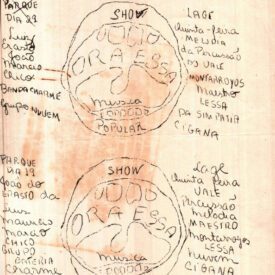 PARQUE
DIA 23
Luis
João
Marcio
Chico
BANDA CHARME
Grupo NUVEM
SHOW
ORA ESSA
musica
POPULAR
LAGE
quinta feira
MELODIA
da Percussão
DO VALE
MONTARROYOS
LESSA
DA SIMPATIA
CIGANA
PARQUE
DIA 19
João do
maurício
marcio
CHICO
GRUPO
charme
SHOW
ORA ESSA
musica
Lage
quinta feira
VALE
Percussão
melodia
MAESTRO
montarroyos
LESSA
nuvem
CIGANA